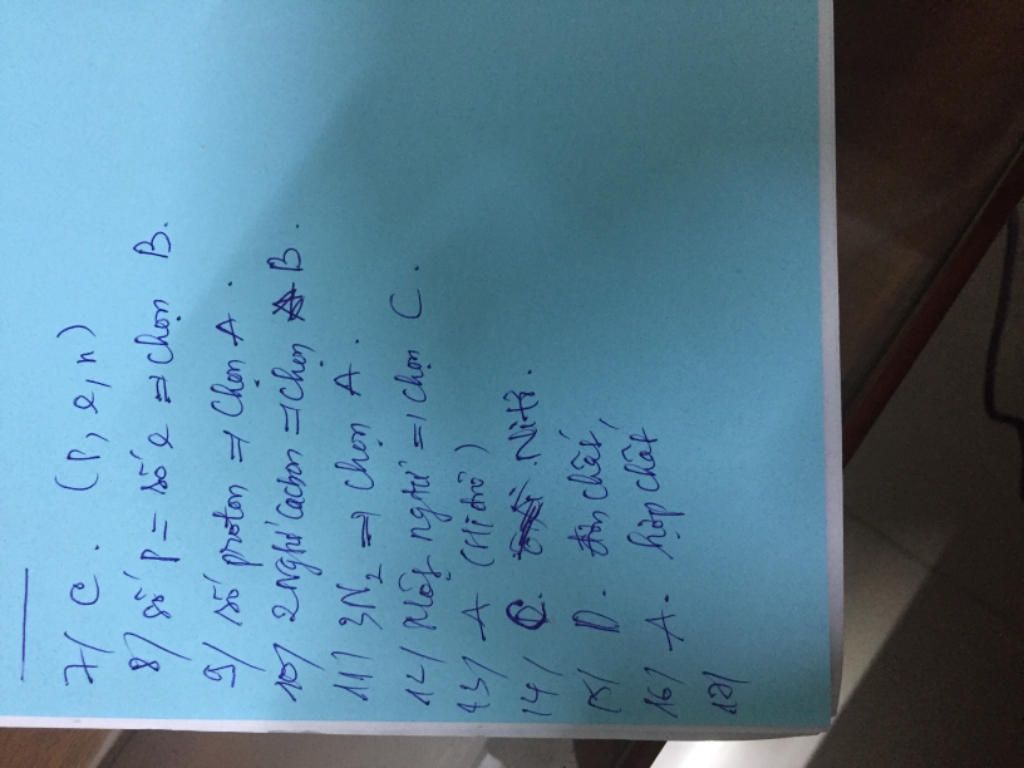 7/ C. (p, e, n)
8/ số p = số e => chọn B.
9/ số proton => chọn A.
10/ 2 Nghtử cacbon => chọn B.
11/ 3N2 => chọn A.
12/ nghtử => chọn C.
13/ A (Hiđrô)
14/ C. Nitơ.
15/ D. đơn chất,
16/ A. hợp chất